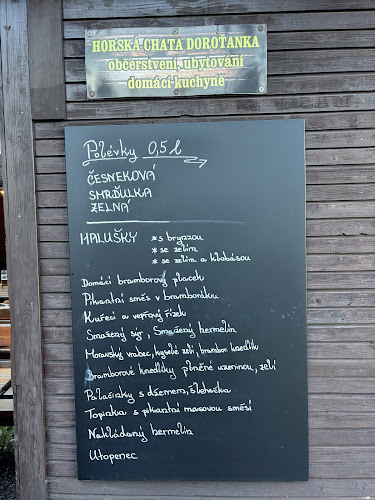 HORSKÁ CHATA DOROŤANKA
občerstvení, ubytování
domácí kuchyně
Polévky 0,5 l
ČESNEKOVÁ
SMRĎULKA
ZELNÁ
HALUŠKY * s bryzou
* se zelím
* se zelím a klobásou
Domácí bramborový placek
Pikantní směs v bramboráku
Kuřecí a vepřový řízek
Smažený sýr, Smažený hermelín
Moravský vrabec, kyselé zelí, brambor. knedlík
Bramborové knedlíky plněné uzeninou, zelí
Palačinky s džemem, šlehačka
Topinka s pikantní masovou směsí
Nakládaný hermelín
Utopenec